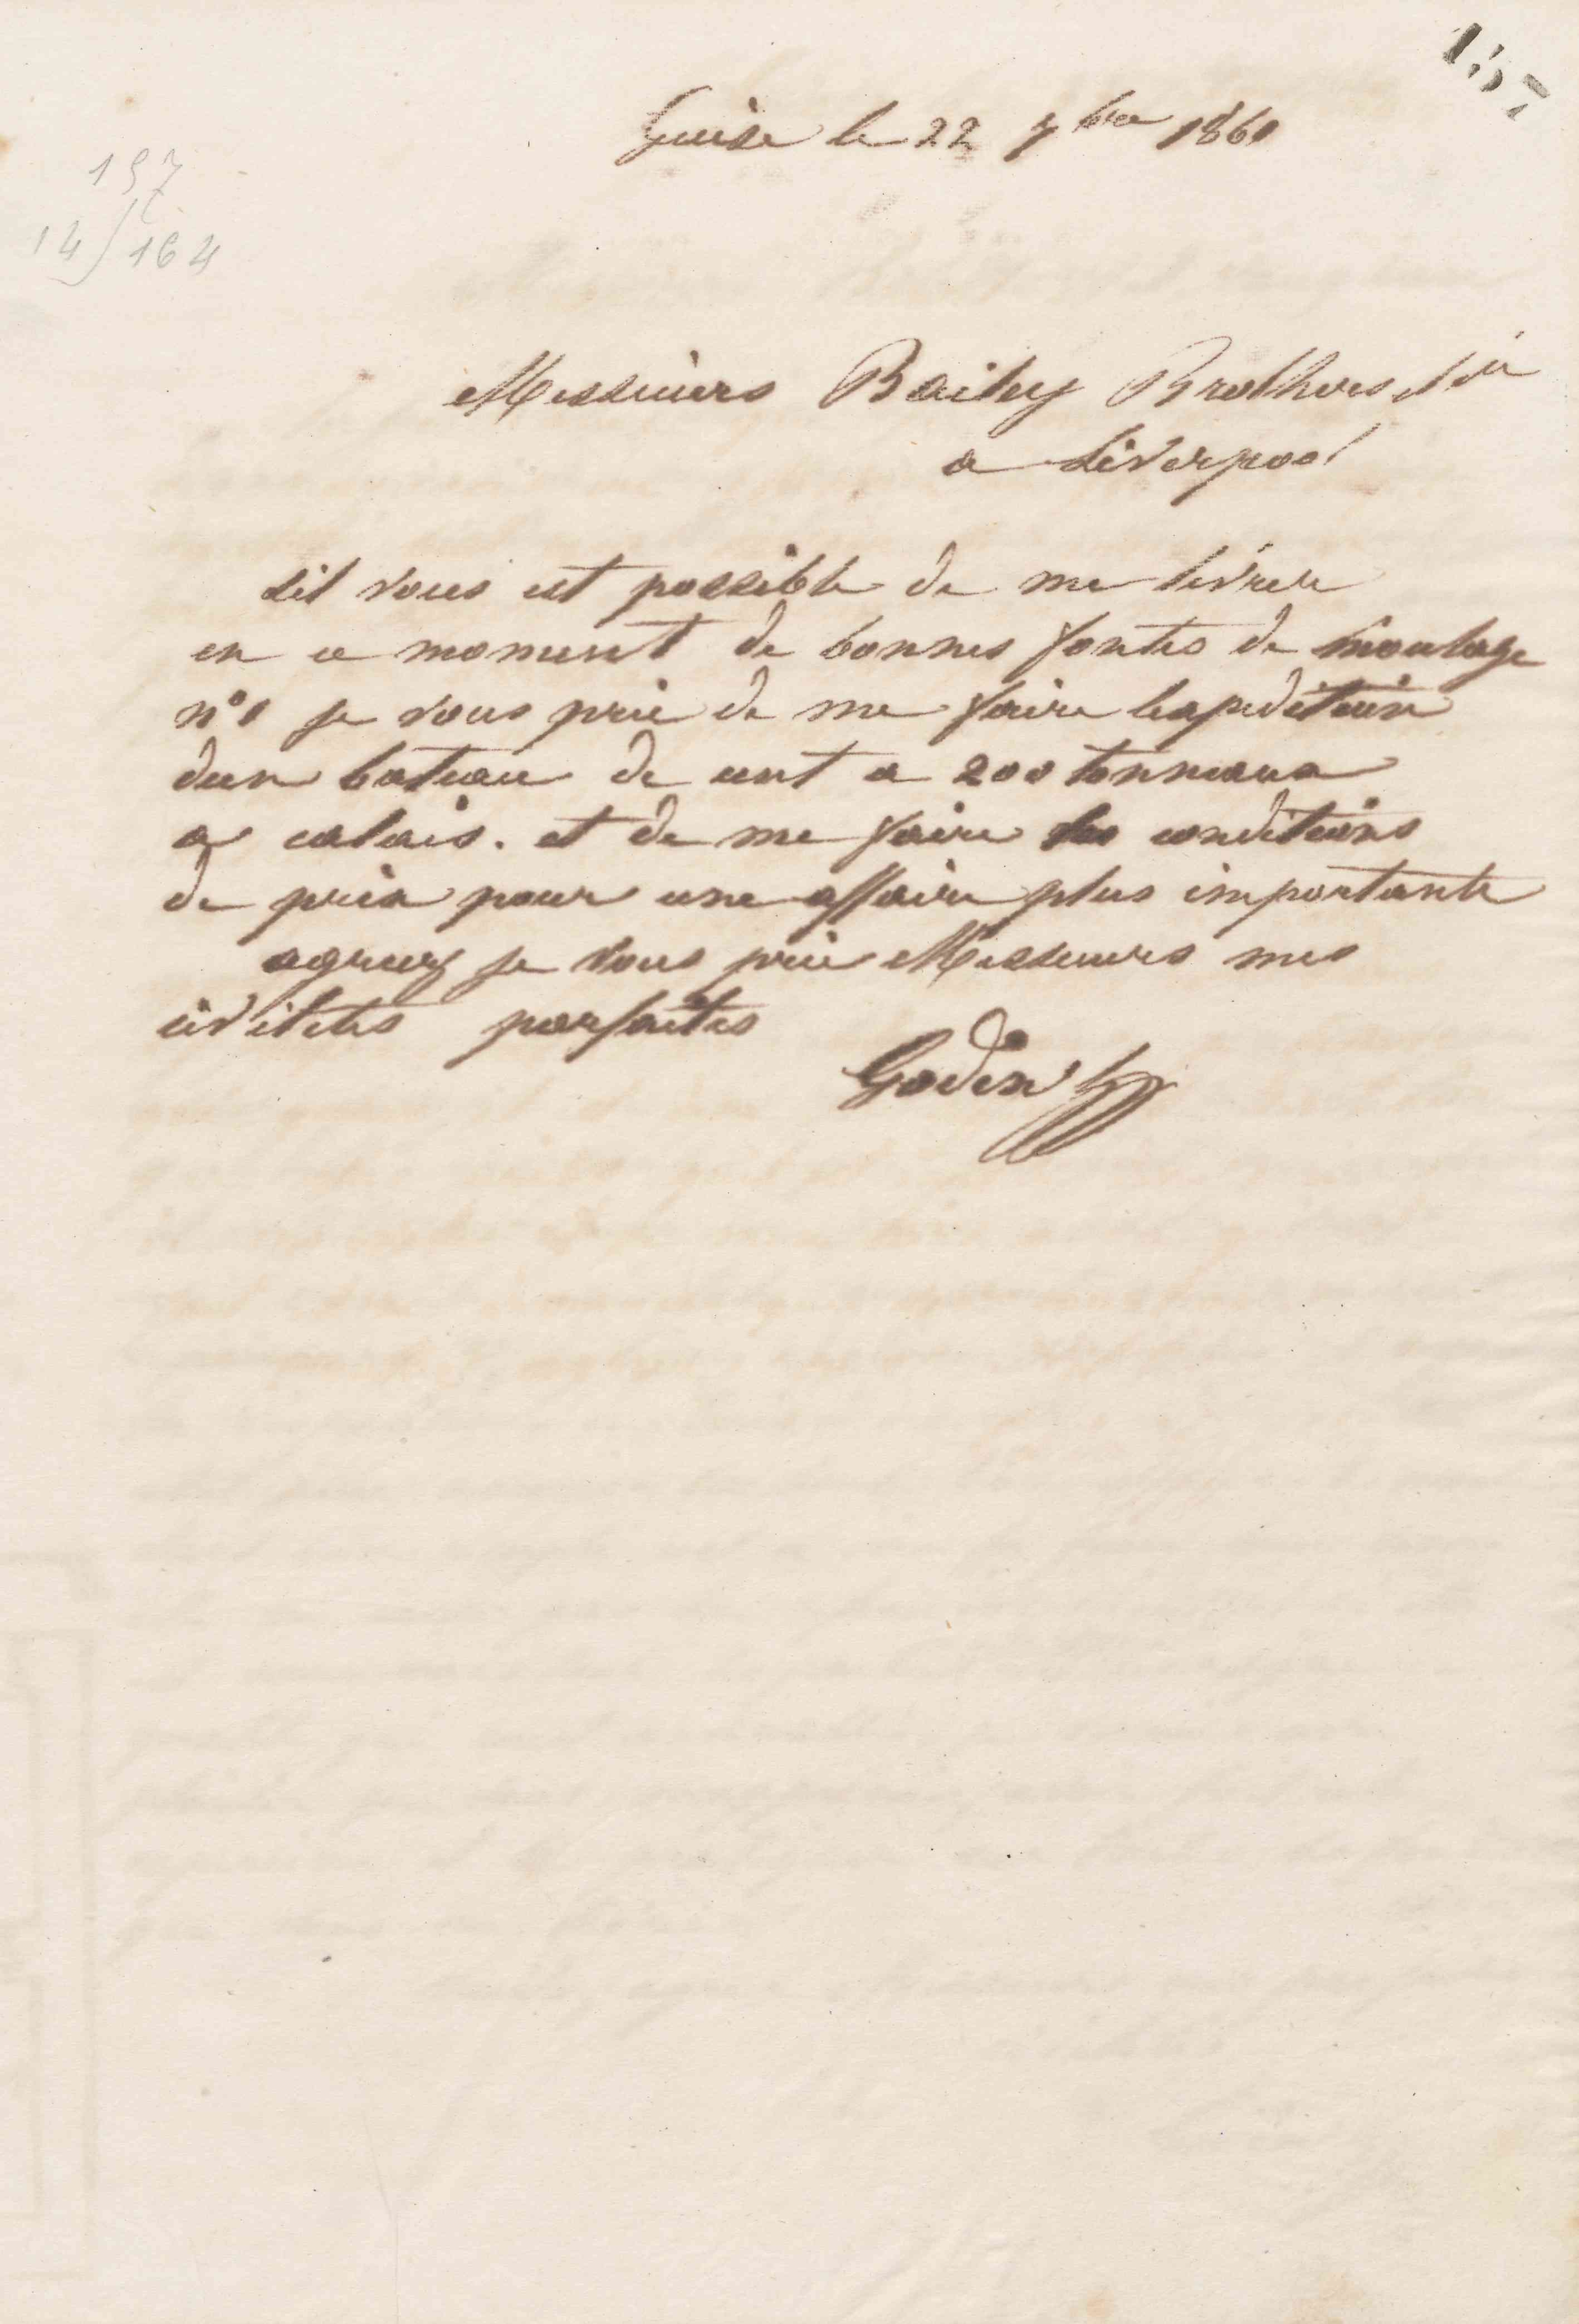 157
Guise le 22 7bre 1860
197
14/164
Messieurs Bailey Brothers & Cie
a Liverpool
sil vous est possible de me livrer
en ce moment de bonnes fontes de moulage
n°1 je vous prie de me faire lexpedition
dun bateau de cent a 200 tonneaux
a calais. et de me faire les conditions
de prix pour une affaire plus importante
agreez je vous prie Messieurs mes
civilites parfaites
Godin